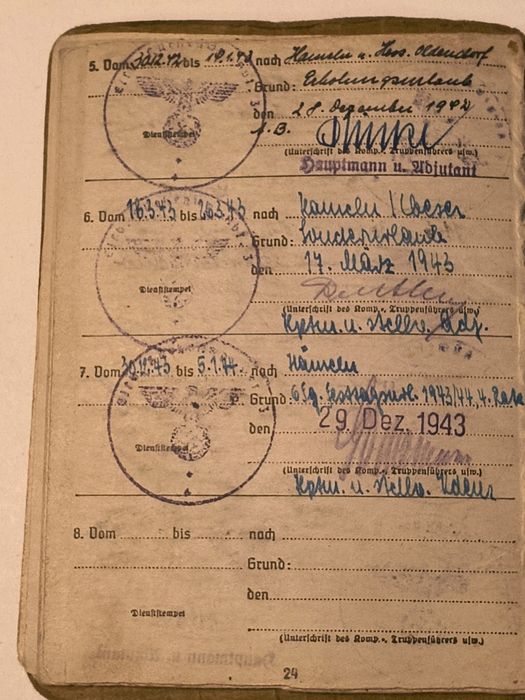 5. Vom 30.12.42 bis 19.1.43 nach Hameln u. Hess. Oldendorf
Grund: Erholungsurlaub
den 28. Dezember 1942
Dienststempel
(Unterschrift des Komp.-, Truppenführers usw.)
Hauptmann u. Adjutant
6. Vom 18.3.43 bis 26.3.43 nach Hameln / Weser
Grund: Sonderurlaub
den 17. März 1943
Dienststempel
(Unterschrift des Komp.-, Truppenführers usw.)
Hptm. u. stellv. Adj.
7. Vom 30.12.43 bis 5.1.44 nach Hameln
Grund 1943/44, 4. Rate
den 29. Dez. 1943
Dienststempel
(Unterschrift des Komp.-, Truppenführers usw.)
Hptm. u. stellv.
8. Vom bis nach
Grund:
den
Dienststempel
(Unterschrift des Komp.-, Truppenführers usw.)
Hauptmann u. Adjutant
24